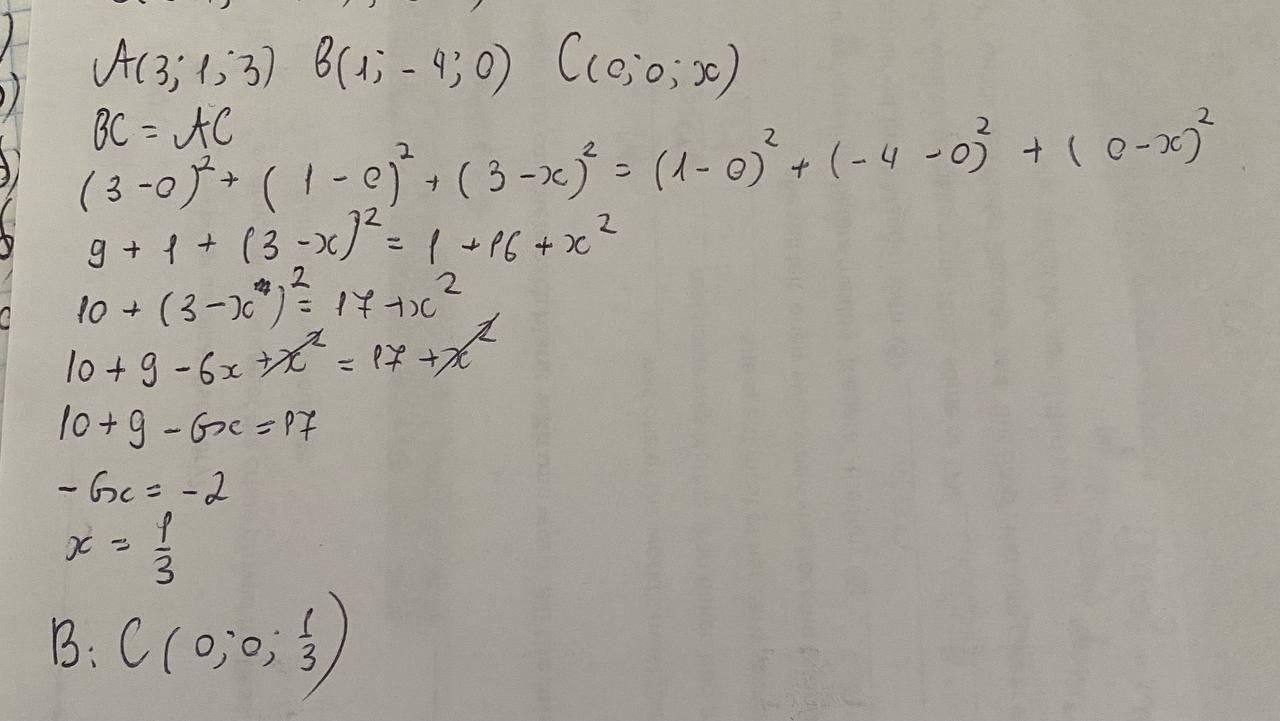 A(3; 1; 3) B(1; -4; 0) C(0; 0; x)
BC = AC
(3-0)² + (1-0)² + (3-x)² = (1-0)² + (-4-0)² + (0-x)²
9 + 1 + (3-x)² = 1 + 16 + x²
10 + (3-x)² = 17 + x²
10 + 9 - 6x + x² = 17 + x²
10 + 9 - 6x = 17
-6x = -2
x = 1/3
В: C(0; 0; 1/3)